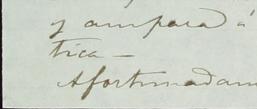 y ampara á
tica—
Afortunadam